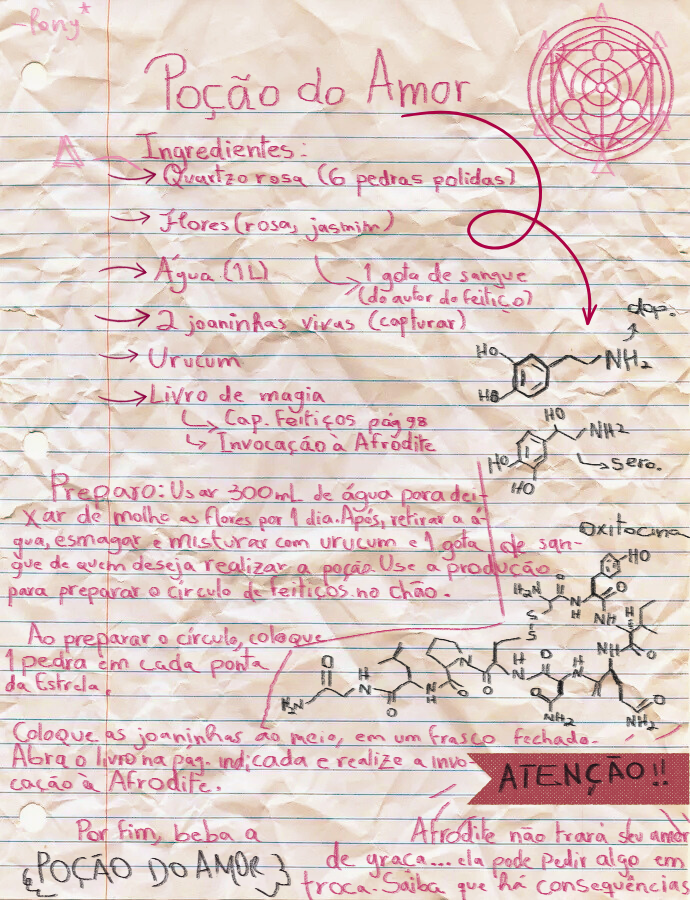 ~Pony*
Poção do Amor
Ingredientes:
→ Quartzo rosa (6 pedras polidas)
→ Flores (rosa, jasmim)
→ Água (1L)
→ 1 gota de sangue
(do autor do feitiço)
→ 2 joaninhas vivas (capturar)
→ Urucum
→ Livro de magia
↳ Cap. Feitiços pág 98
↳ Invocação à Afrodite
dop.
HO
HO
NH2
HO
NH2
HO
HO
sero.
Preparo: Usar 300mL de água para dei-
xar de molho as flores por 1 dia. Após, retirar a á-
gua, esmagar e misturar com urucum e 1 gota de san-
gue de quem deseja realizar a poção. Use a produção
para preparar o círculo de feitiços no chão.
Oxitocina
HO
H2N
O
O
N
H
NH
H
S
S
O
NH
O
H
N
O
H
N
O
N
O
H
N
O
H
N
O
H2N
O
NH2
O
NH2
Ao preparar o círculo, coloque
1 pedra em cada ponta
da Estrela.
Coloque as joaninhas ao meio, em um frasco fechado.
Abra o livro na pag. indicada e realize a invo-
cação à Afrodite.
ATENÇÃO!!
Por fim, beba a
{POÇÃO DO AMOR}
Afrodite não trará seu amor
de graça... ela pode pedir algo em
troca. Saiba que há consequências